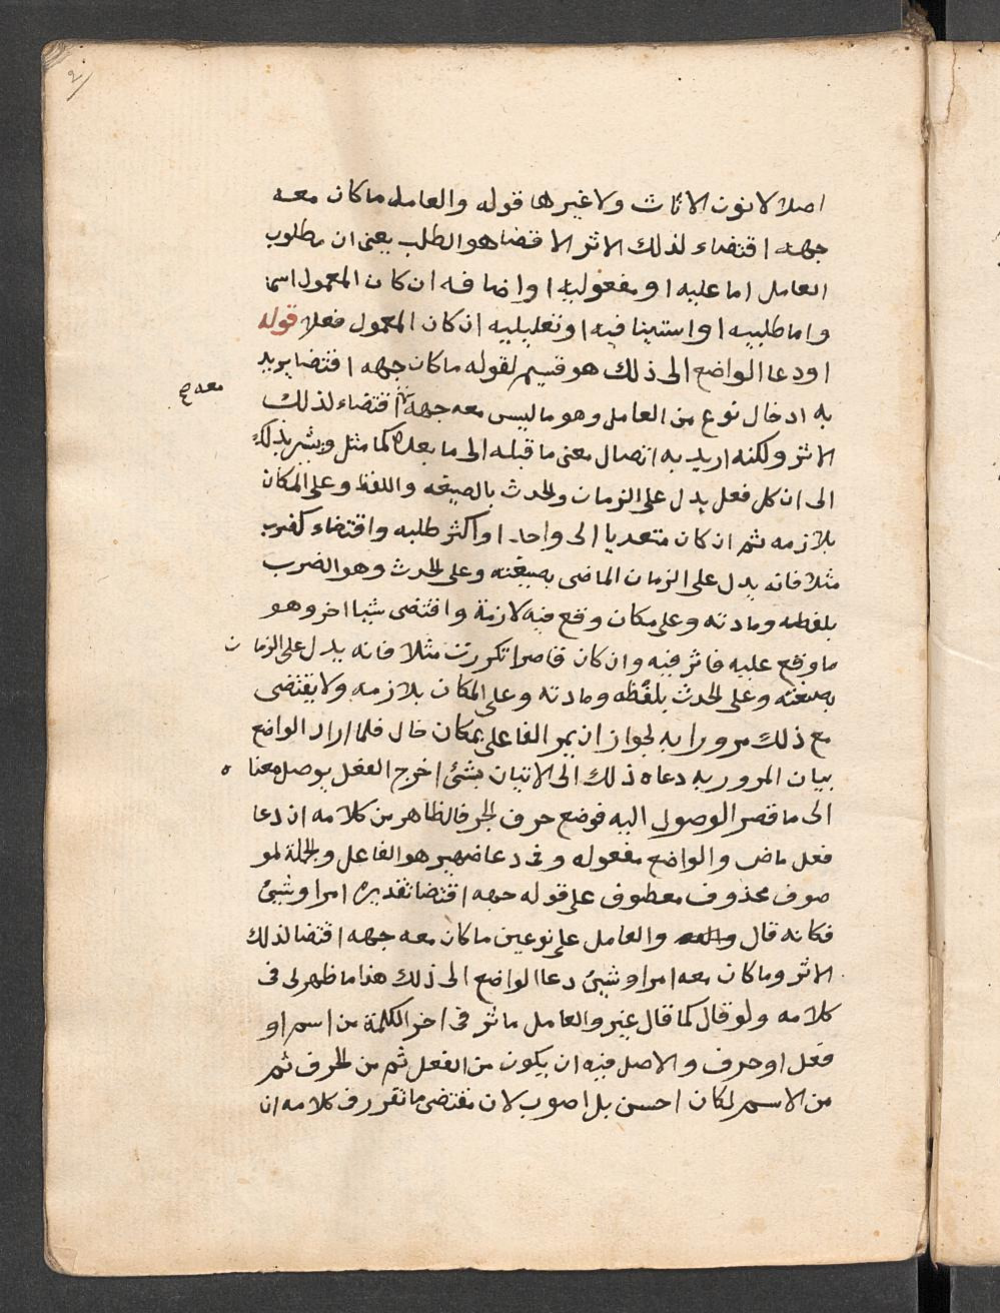 2
اصلا لا نون الاناث ولا غيرها قوله والعامل ما كان معه
جهة اقتضاء لذلك الاثر الاقتضا هو الطلب يعنى ان مطلوب
العامل اما عليه او مفعوليه او اضافه ان كان المعمول اسما
واما طلبيه او استينافيه او تعليليه ان كان المعمول فعلا قوله
او دعا الواضع الى ذلك هو قسيم لقوله ما كان جهه اقتضا يريد
معه صح
به ادخال نوع من العامل وهو ما ليس معه جهة اقتضاء لذلك
الاثر ولكنه اريد به اتصال معنى ما قبله الى ما بعده كما مثل ويشير بذلك
الى ان كل فعل يدل على الزمان والحدث بالصيغه واللفظ وعلى المكان
بلازمه ثم ان كان متعديا الى واحد او اكثر طلبه واقتضاء كضرب
مثلا فانه يدل على الزمان الماضى بصيغته وعلى الحدث وهو الضرب
بلفظه ومادته وعلى مكان وقع فيه لازمة واقتضى شيا اخر وهو
ما وقع عليه فاثر فيه وان كان قاصرا تكررت مثلا فانه يدل على الزمان
بصيغته وعلى الحدث بلفظه ومادته وعلى المكان بلازمه ولا يقتضى
مع ذلك مرورا به لجواز ان يمر الفاعل بمكان خال فلما اراد الواضع
بيان المرور به دعاه ذلك الى الاتيان بشئ اخرج الفعل يوصل معناه
الى ما قصر الوصول اليه فوضع حرف الجر فالظاهر من كلامه ان دعا
فعل ماض والواضع مفعوله وفى دعا ضمير هو الفاعل والجملة لمو
صوف محذوف معطوف على قوله جهه اقتضا تقديره امرا وشئ
فكانه قال والعامل على نوعين ما كان معه جهه اقتضا لذلك
الاثر وما كان معه امرا وشئ دعا الواضع الى ذلك هذا ما ظهر لى فى
كلامه ولو قال كما قال غير والعامل ما ثر فى اخر الكلمة من اسم او
فعل او حرف والاصل فيه ان يكون من الفعل ثم من الحرف ثم
من الاسم لكان احسن بل اصوب لان مقتضى ما تقرر فى كلامه ان